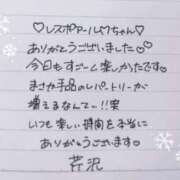 ♡レスポアールパクちゃん♡
ありがとうございました♡
今日もすごーく楽しかたです♡
まさか手品のレパートリーが
増えるなんてー!!笑
いつも楽しい時間を本当に
ありがとうございます♡
芹沢